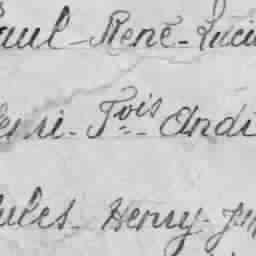 Paul - René - Lucie
Henri - Fois - André
Jules - Henry - Jos